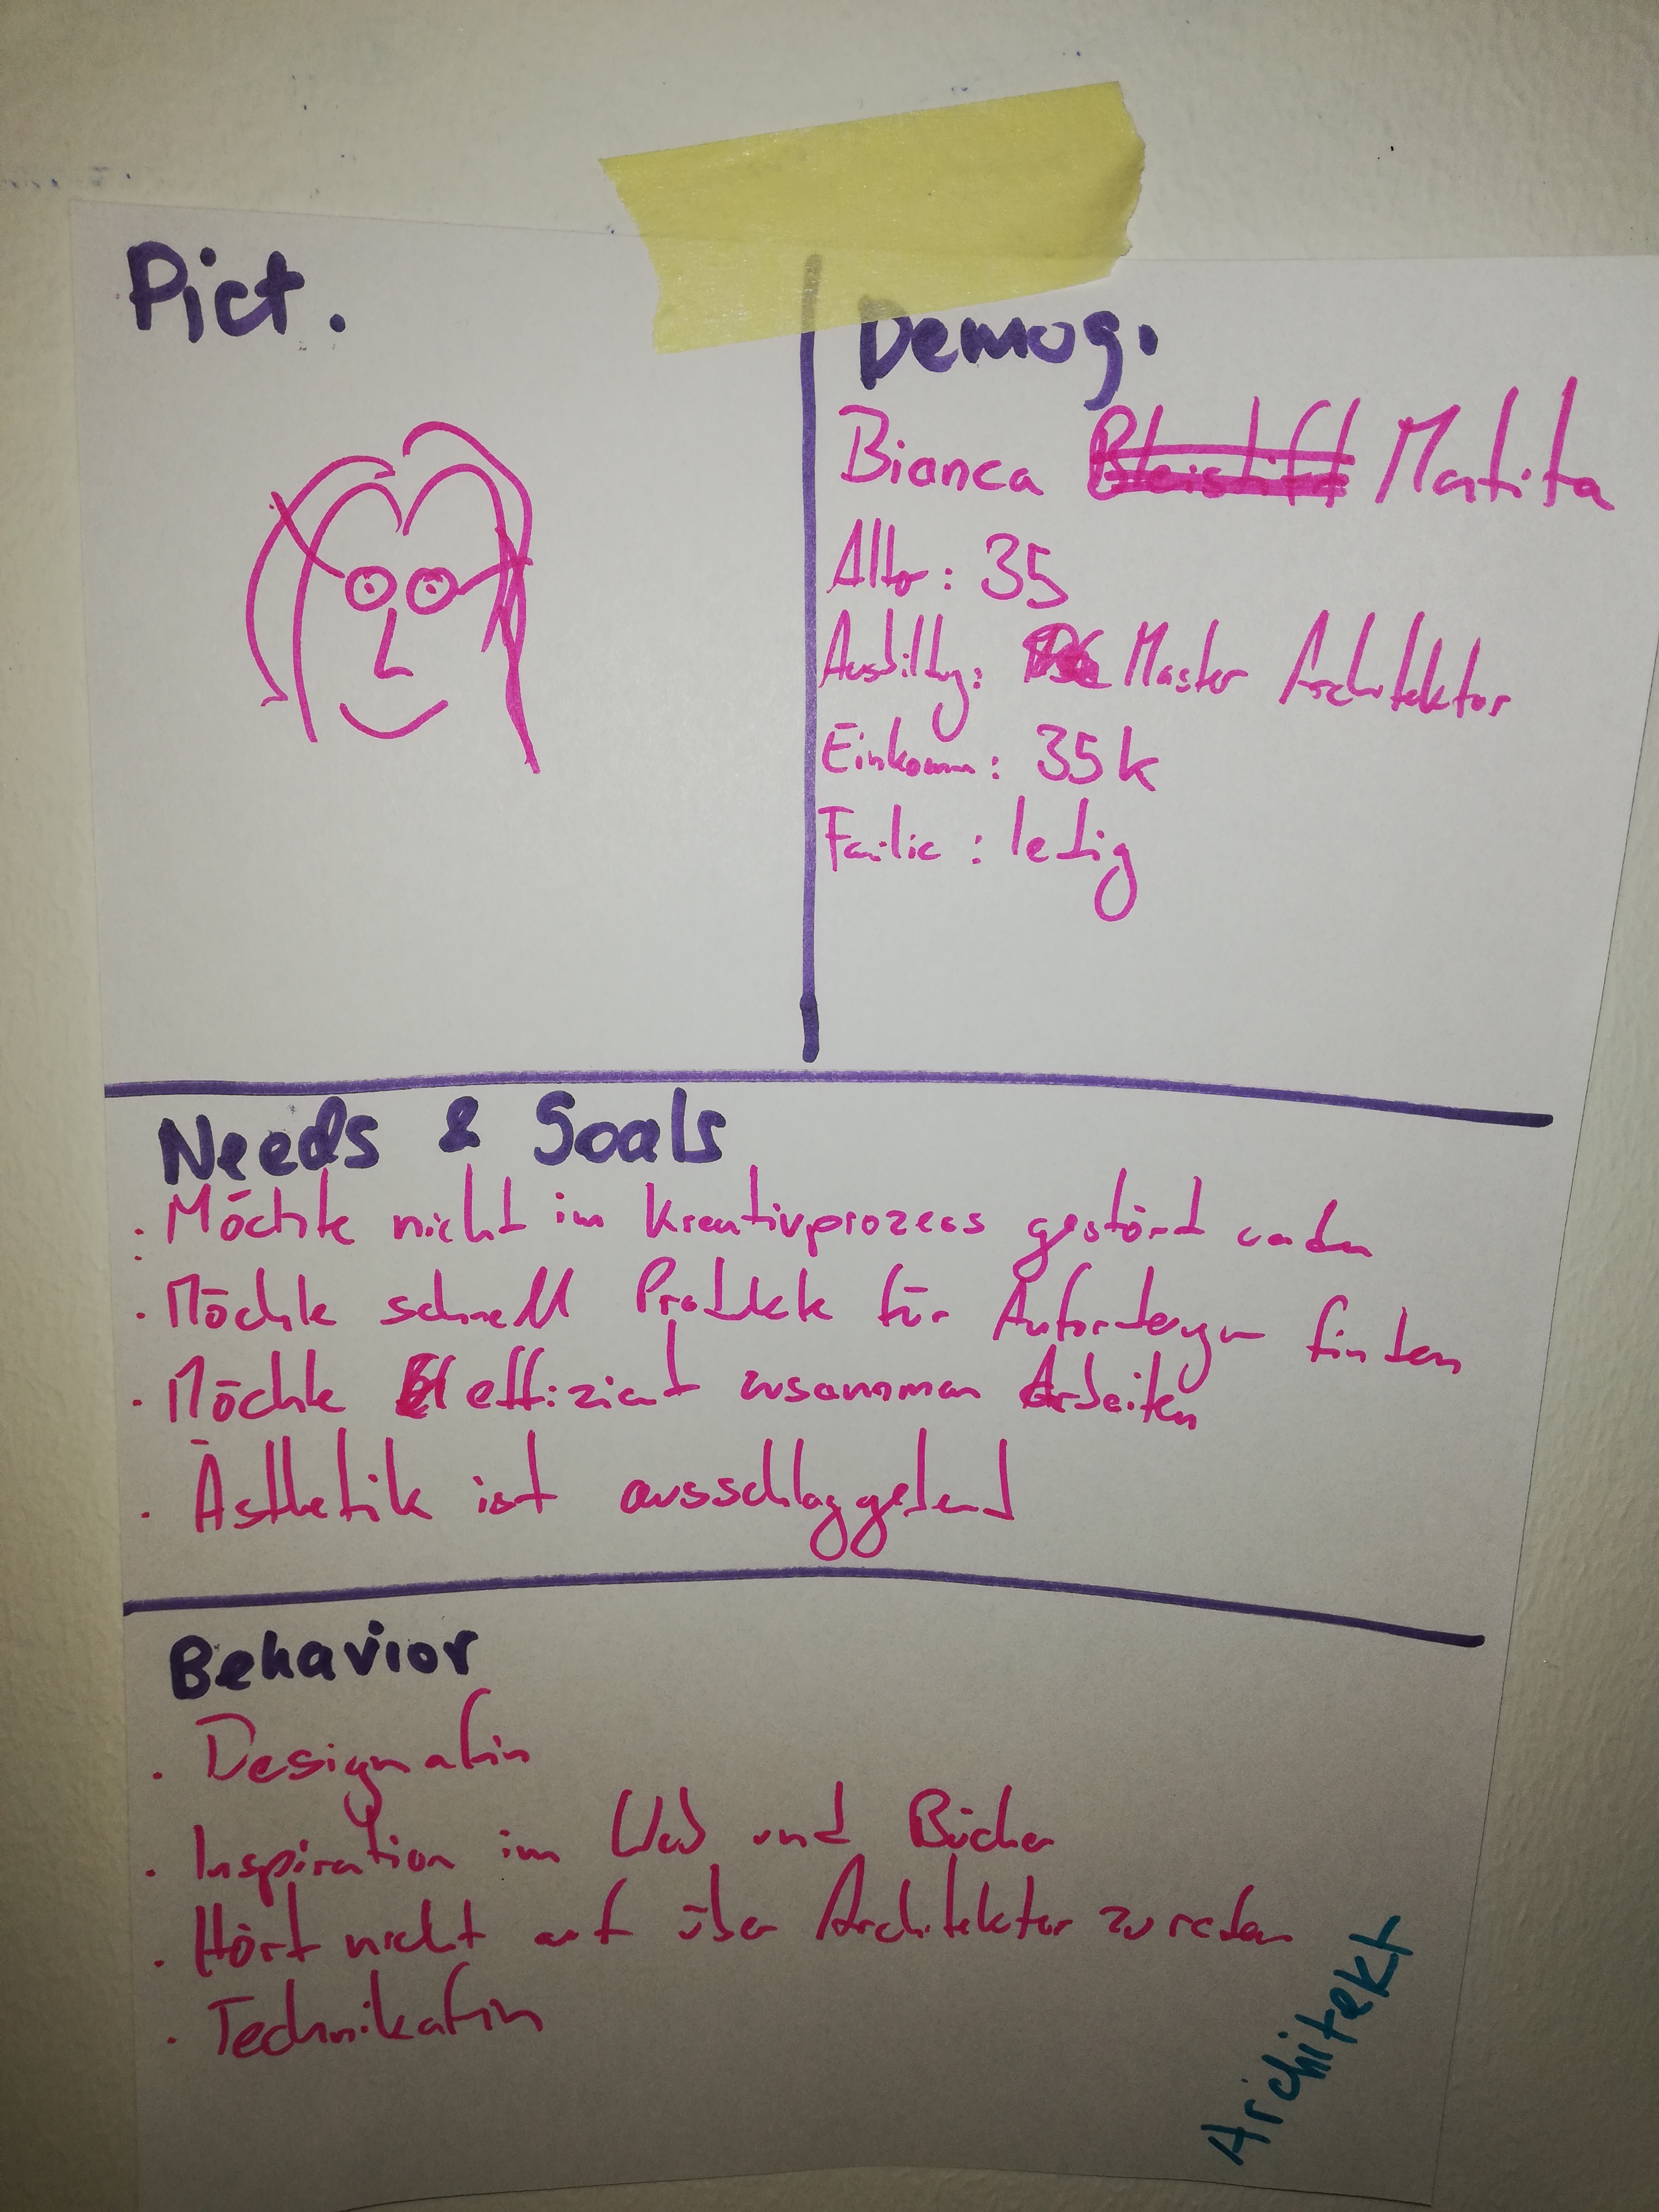 Pict.
Demog.
Bianca Bleistift Matita
Alter: 35
Ausbildung: Master Architektur
Einkomm: 35k
Familie: ledig
Needs & Goals
· Möchte nicht im Kreativprozess gestört werden
· Möchte schnell Produkte für Anforderungen finden
· Möchte effizient zusammen Arbeiten
· Ästhetik ist ausschlaggebend
Behavior
· Designafin
· Inspiration im Web und Bücher
· Hört nicht auf über Architektur zu reden
· Technikafin
Architekt